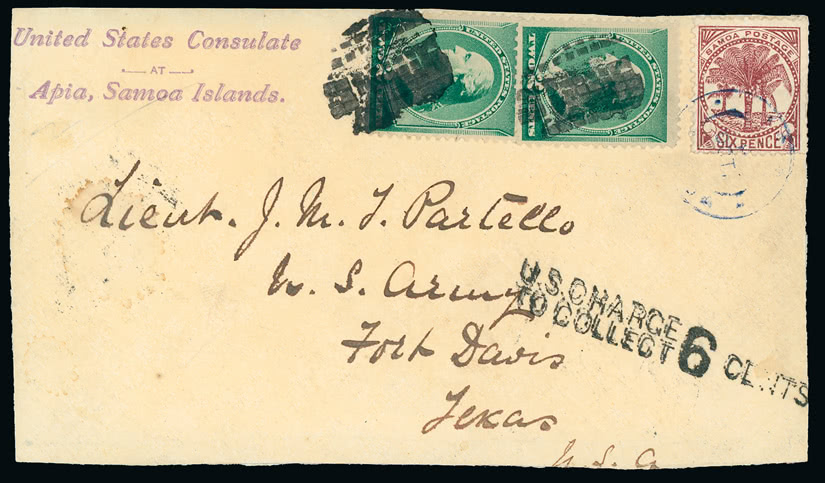 United States Consulate
AT
Apia, Samoa Islands.
UNITED STATES POSTAGE
TWO
UNITED STATES POSTAGE
SAMOA POSTAGE
SIX PENCE
Lieut. J. M. T. Partello
U. S. Army
Fort Davis
Texas
U. S. a
U.S. CHARGE
TO COLLECT 6 CENTS